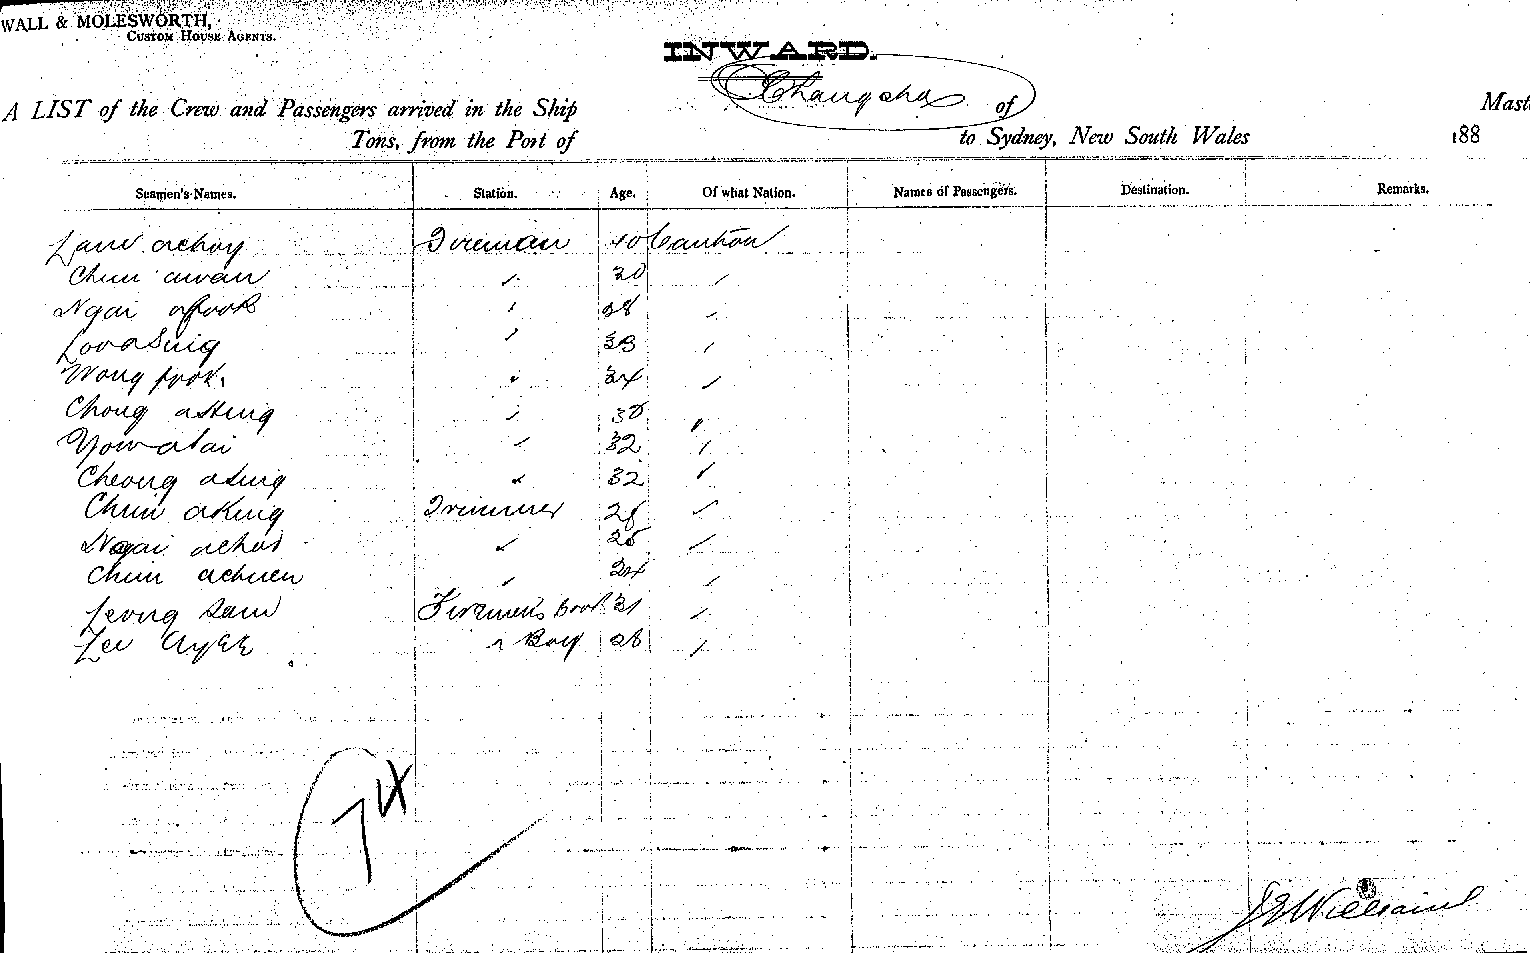 WALL & MOLESWORTH,
CUSTOM HOUSE AGENTS.
INWARD.
A LIST of the Crew and Passengers arrived in the Ship Changsha of Mast
Tons, from the Port of to Sydney, New South Wales 188
Seamen's Names. Station. Age. Of what Nation. Names of Passengers. Destination. Remarks.
achoy Fireman 40 Canton
Chun awan " 30 "
Ngai afook " 28 "
" 33 "
Wong fook " 34 "
Chong " "
Yow atai " 32 "
Cheong asing " 32 "
Chun aking Trimmer "
Ngai "
Chun achuen " 24 "
Leong Sam Firemen's Cook 31 "
Lee Ayee " Boy 28 "
74